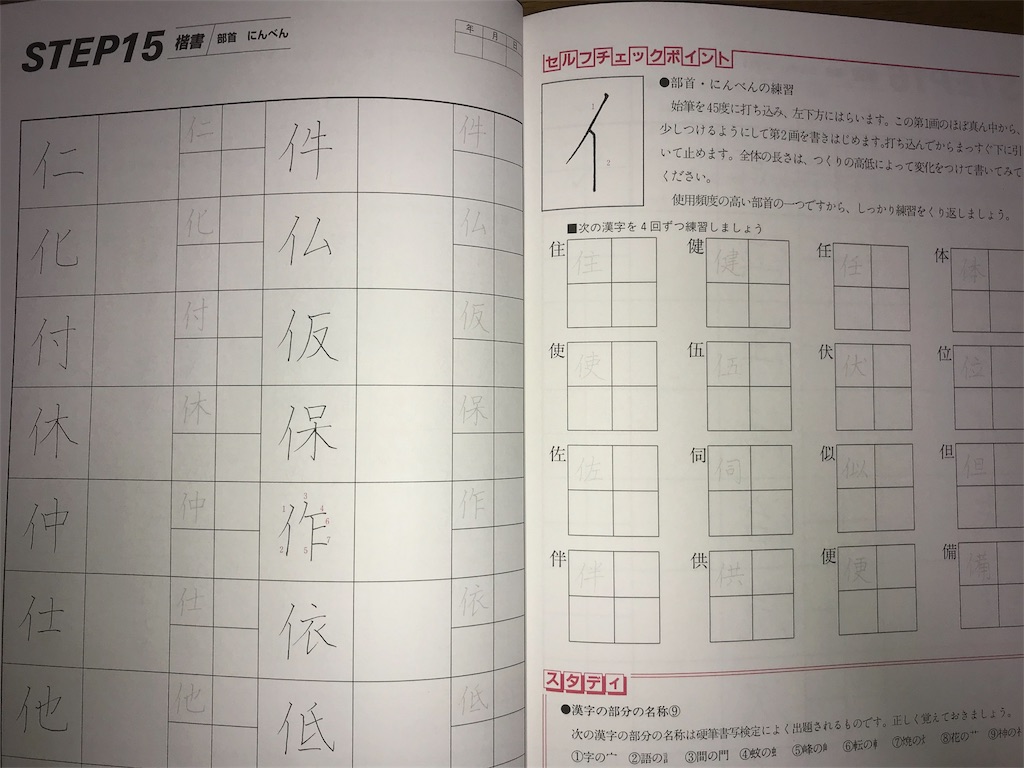 STEP15 楷書 部首 にんべん
年 月 日
仁 仁 件 件
化 化 仏 仏
付 付 仮 仮
休 休 保 保
仲 仲 作 作
1 2 3 4 5 6 7
仕 仕 依 依
他 他 低 低
セルフチェックポイント
イ 1 2
●部首・にんべんの練習
始筆を45度に打ち込み、左下方にはらいます。この第1画のほぼ真ん中から、
少しつけるようにして第2画を書きはじめます。打ち込んでからまっすぐ下に引
いて止めます。全体の長さは、つくりの高低によって変化をつけて書いてみて
ください。
使用頻度の高い部首の一つですから、しっかり練習をくり返しましょう。
■次の漢字を4回ずつ練習しましょう
住 住 健 健 任 任 体 体
使 使 伍 伍 伏 伏 位 位
佐 佐 伺 伺 似 似 但 但
伴 伴 供 供 便 便 備 備
スタディ
●漢字の部分の名称⑨
次の漢字の部分の名称は硬筆書写検定によく出題されるものです。正しく覚えておきましょう。
①字の宀 ②語の訁 ③間の門 ④蚊の虫 ⑤峰の山 ⑥転の車 ⑦焼の火 ⑧花の艹